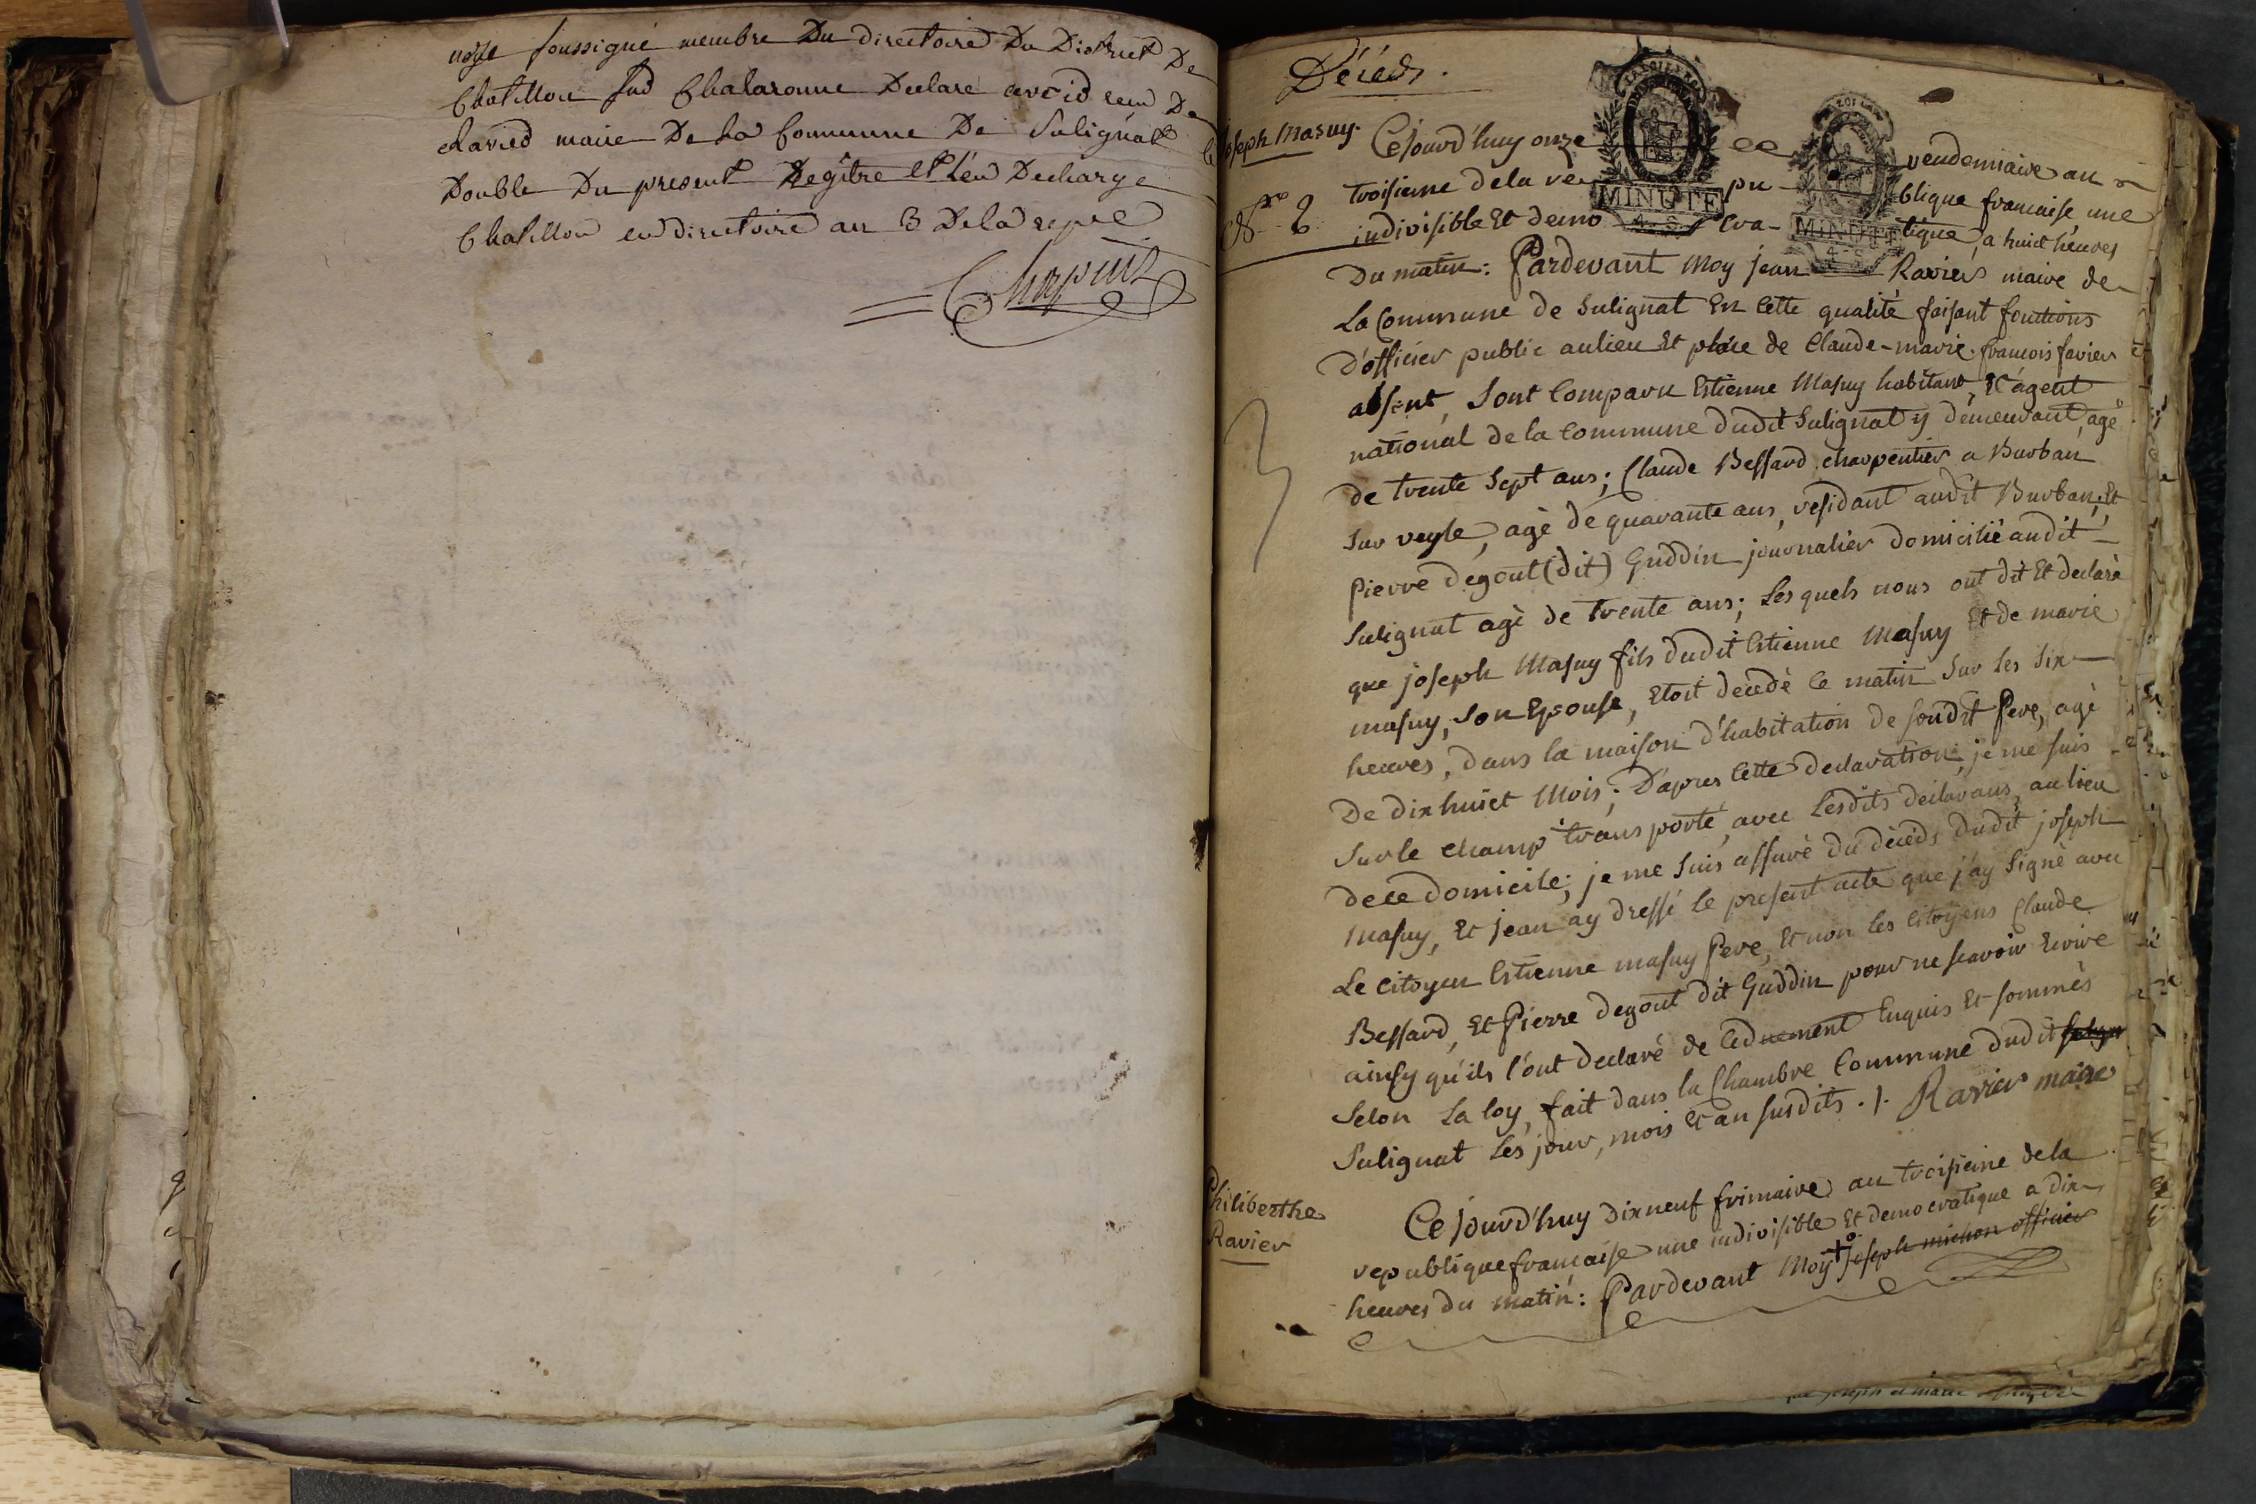 soussigné membre Du directoire Du District De
Chatillon sur Chalaronne Declare avoir recu De
Ravier maire De La Commune De Sulignat Le
Double Du present Regitre et L'en Decharge
Chatillon en directoire an 3 De la repue
Chapuis
Décéds.
Joseph Masuy.
Cejourd'huy onze vendemiaire an
troisieme dela re pu blique francaise une
indivisible Et demo cra- tique, a huit heures
MINUTE
4. S.
MINUTE
4. S.
Du matin: Pardevant Moy jean Ravier maire de
La Commune de Sulignat En Cette qualité faisant fonctions
D'officier public aulieu Et place de Claude-marie-francois favier
absent, Sont Comparu Estienne Masuy habitant, Et agent
national de la Commune dudit Sulignat y demeurant, agé
de trente Sept ans; Claude Bessard charpentier a Burban
Sur veyle, agè de quarante ans, residant audit Burban; Et
Pierre degout (dit) Guddin journalier domicilié audit
Sulignat agè de trente ans; Lesquels nous ont dit Et declarè
que joseph Masuy fils dudit Estienne Masuy Et de marie
masuy, Son Epouse, Etoit decedè Ce matin Sur les Six
heures, dans la maison d'habitation de sondit Pere, agè
De dix huict Mois; D'apres Cette declaration, je me suis
Surle champ transporté, avec Lesdits declarans, au lieu
de ce Domicile; je me Suis assurè du décéds dudit joseph
Masuy, Et jean ay dressé le present acte que j'ay Signè avec
Le Citoyen Estienne masuy Pere, Et non les Citoyens Claude
Bessard, Et Pierre degout dit Guddin pour ne scavoir Ecrire
ainsy qu'ils l'ont declaré de Ce duement Enquis Et Sommès
Selon La loy, fait dans la Chambre Commune dudit
Sulignat Les jour, mois Et an susdits ./. Ravier maire
Philiberthe
Ravier
Cejourd'huy dixneuf frimaire an troisieme dela
republique francaise une indivisible Et democratique a dix
heures du matin: Pardevant Moy joseph michon officier